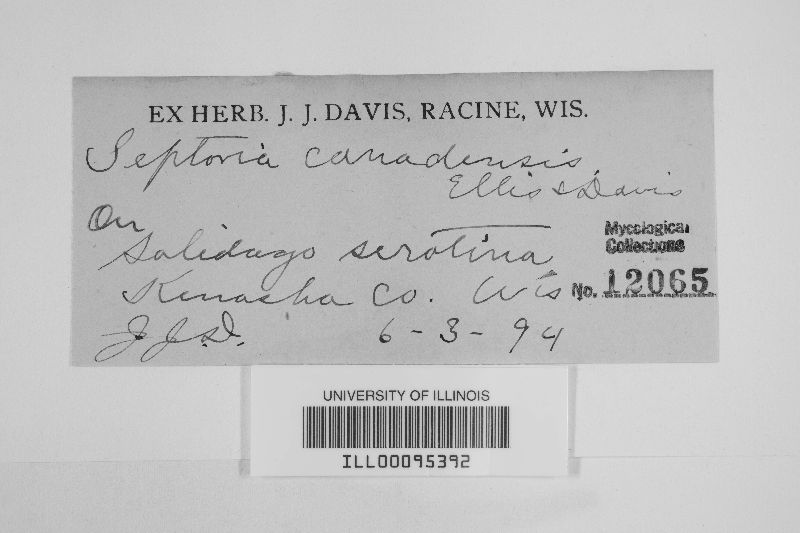 EX HERB. J. J. DAVIS, RACINE, WIS.
Septoria canadensis
Ellis & Davis
On
Solidago serotina
Mycological
Collections
No. 12065
Kenosha Co. Wis
J. J. D. 6-3-94
UNIVERSITY OF ILLINOIS
ILL00095392